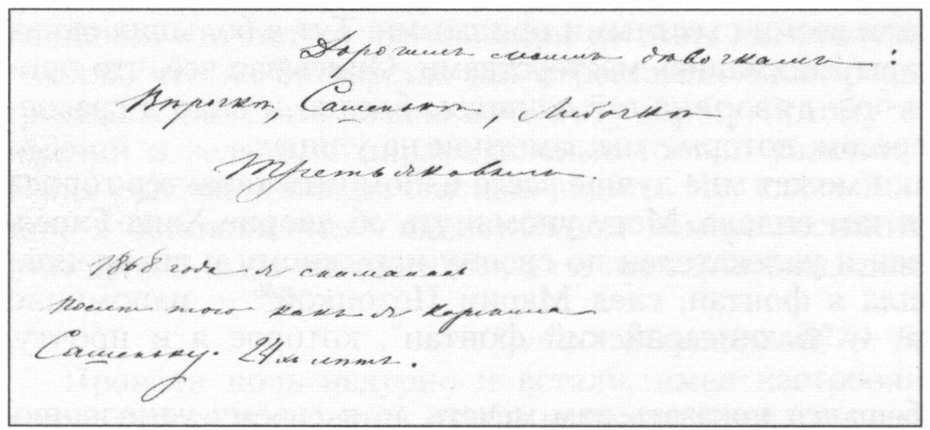 Дорогимъ моимъ дѣвочкамъ:
Вѣрочкѣ, Сашенькѣ, Любочкѣ
Третьяковымъ.
1868 года я снималась
послѣ того какъ я кормила
Сашеньку. 24хъ лѣтъ.